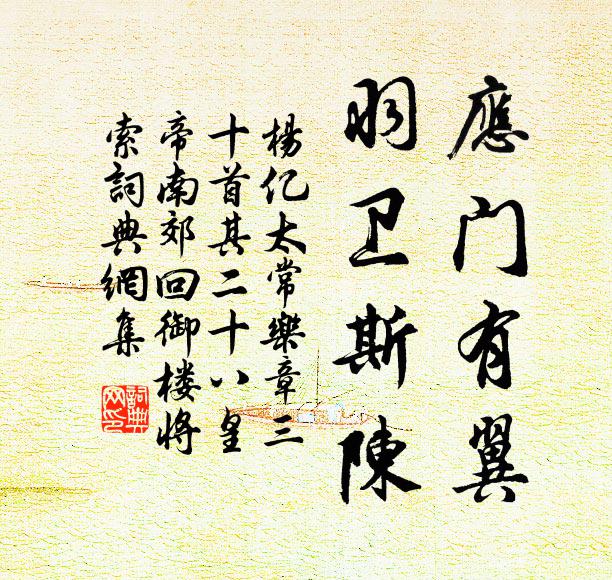 應门有翼
羽卫斯陳
楊亿太常樂章三
十首其二十八皇
帝南郊回御楼将
索詞典網集
詞典
网印